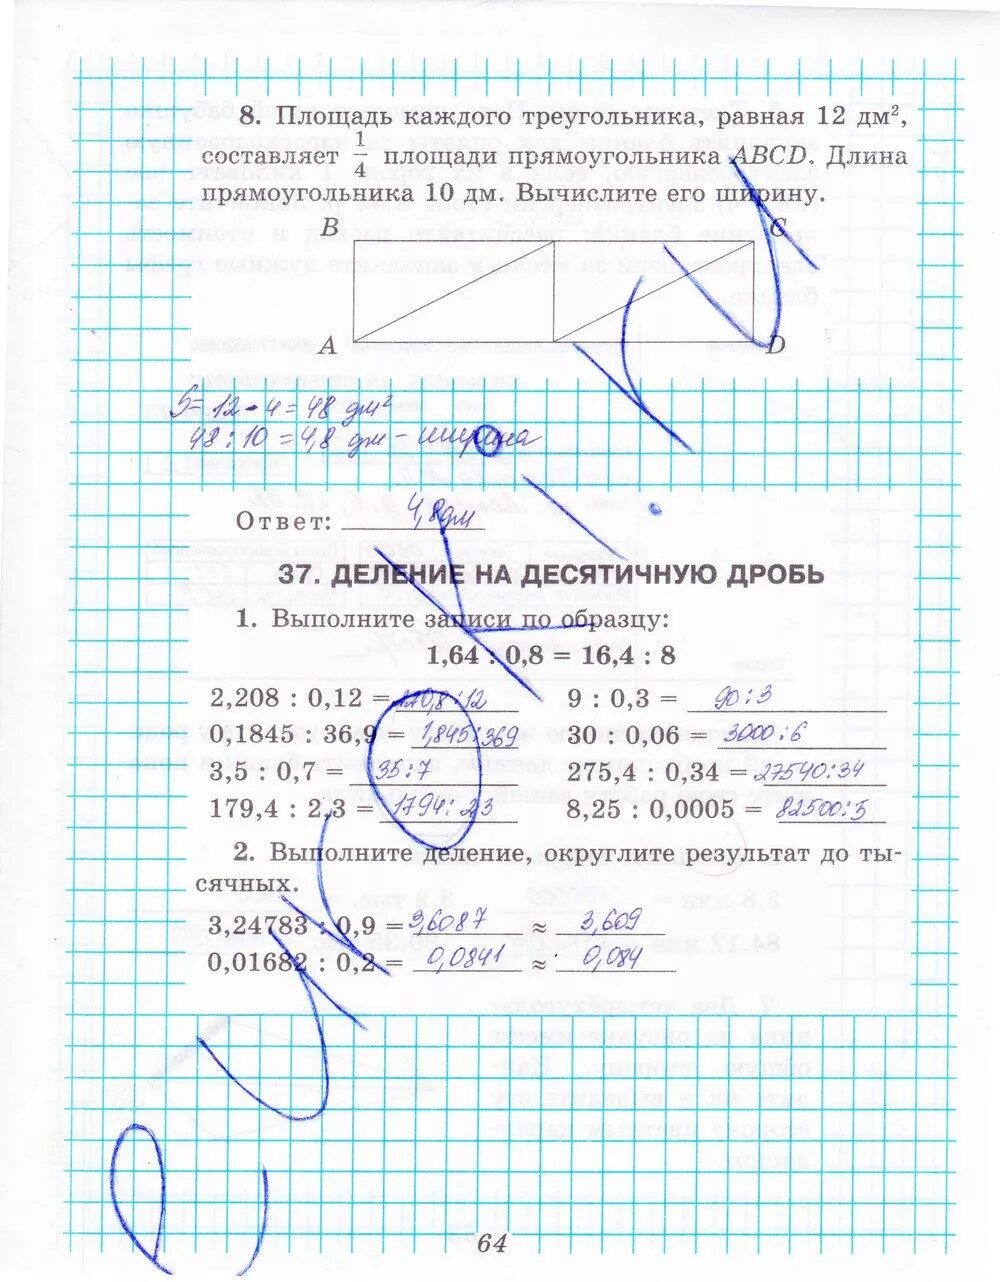 8. Площадь каждого треугольника, равная 12 дм²,
составляет 1/4 площади прямоугольника ABCD. Длина
прямоугольника 10 дм. Вычислите его ширину.
B C
A D
S = 12 · 4 = 48 дм²
48 : 10 = 4,8 дм – ширина
Ответ: 4,8дм
37. ДЕЛЕНИЕ НА ДЕСЯТИЧНУЮ ДРОБЬ
1. Выполните записи по образцу:
1,64 : 0,8 = 16,4 : 8
2,208 : 0,12 = 220,8:12 9 : 0,3 = 90:3
0,1845 : 36,9 = 1,845:369 30 : 0,06 = 3000:6
3,5 : 0,7 = 35:7 275,4 : 0,34 = 27540:34
179,4 : 2,3 = 1794:23 8,25 : 0,0005 = 82500:5
2. Выполните деление, округлите результат до ты-
сячных.
3,24783 : 0,9 = 3,6087 ≈ 3,609
0,01682 : 0,2 = 0,0841 ≈ 0,084
64